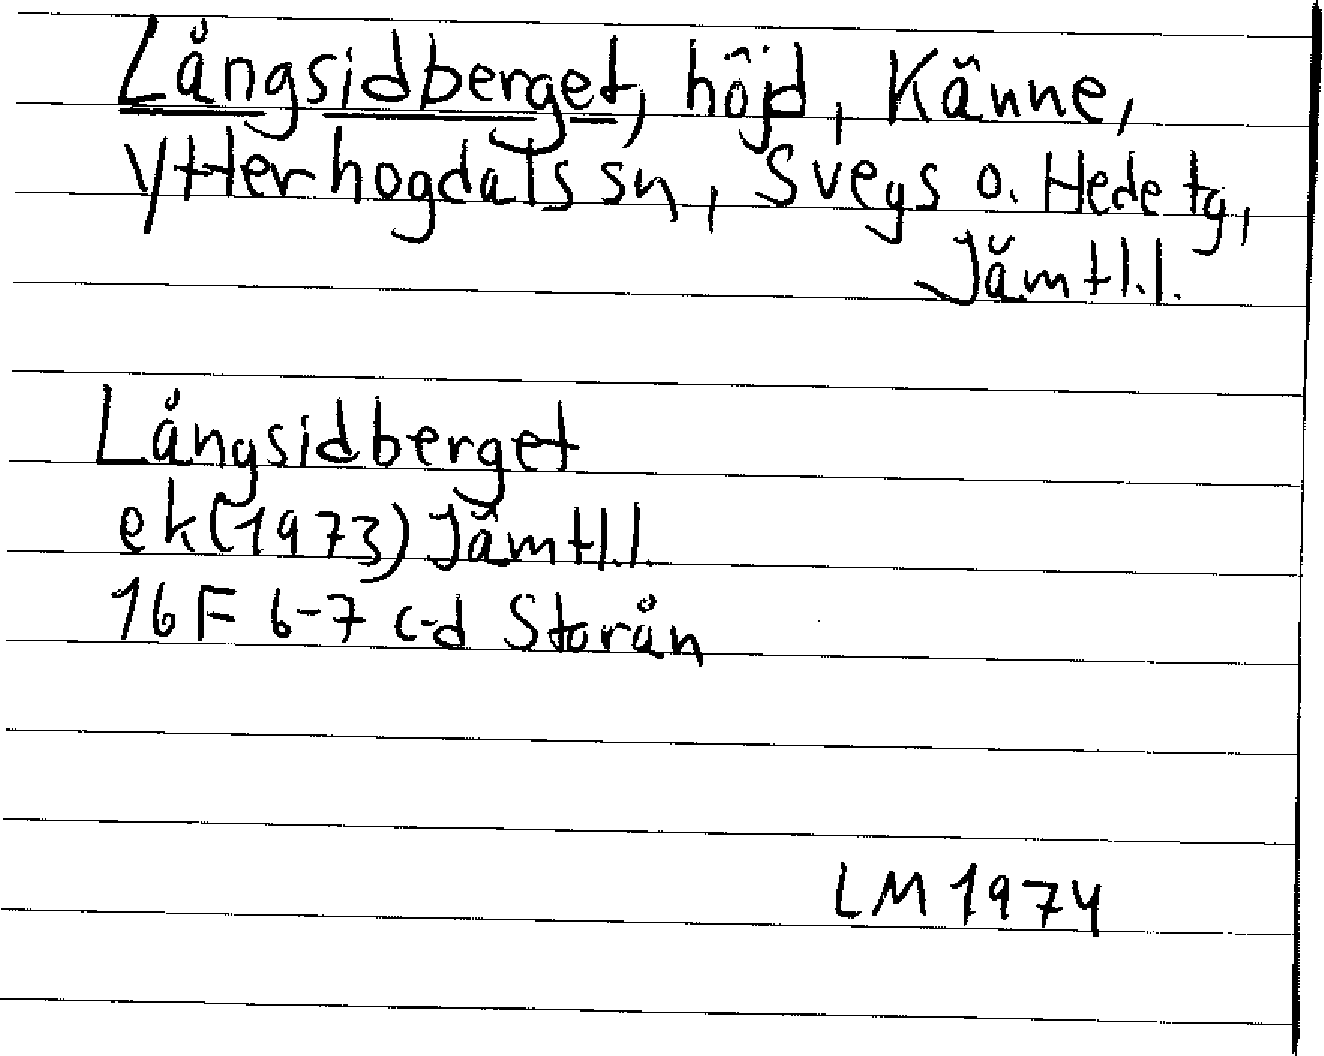 Långsidberget, höjd, Känne,
Ytterhogdals sn, Svegs o. Hede tg,
Jämtl.l.
Långsidberget
ek(1973) Jämtl.l.
16 F 6-7 c-d Storån
LM 1974